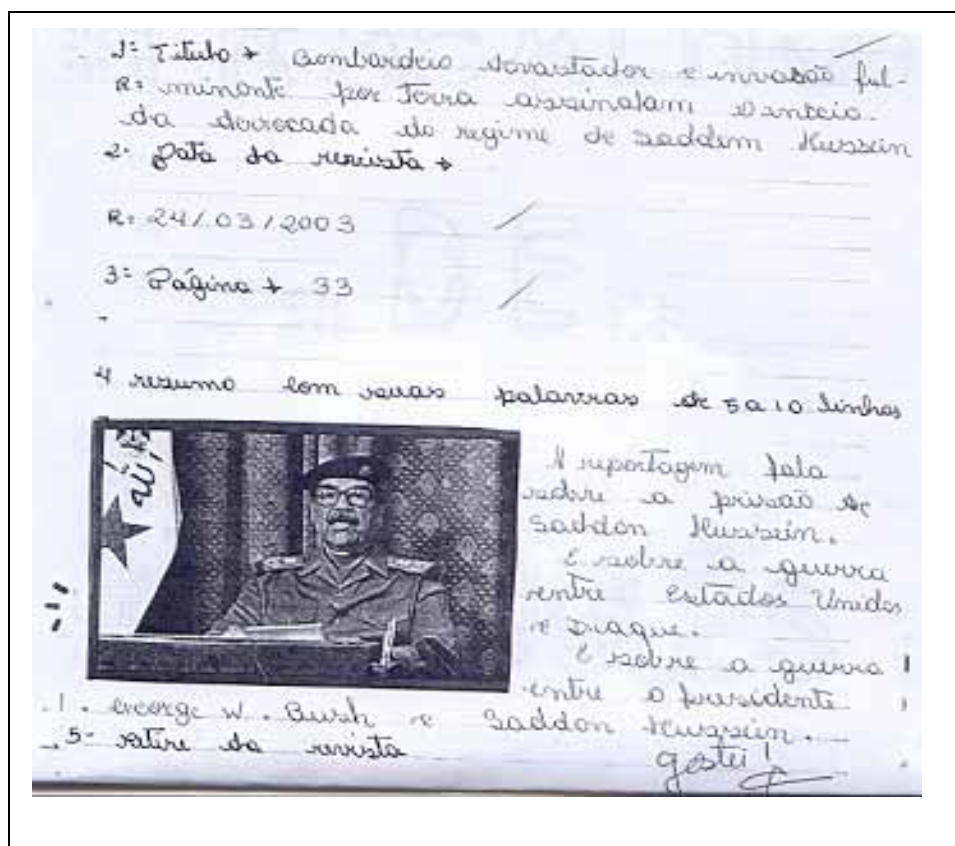 1= Título → Bombardeio devastador e invasão ful-
R: minante por Terra assinalam o início
da derrocada do regime de Saddam Hussein
2- Data da revista →
R: 24/03/2003
3= Página → 33
4 resumo com suas palavras de 5 a 10 linhas
A reportagem fala
sobre a prisão de
Saddon Hussein.
E sobre a guerra
entre Estados Unidos
e Iraque.
E sobre a guerra
entre o presidente
George W. Bush e Saddon Hussein.
5- retire da revista
gostei!